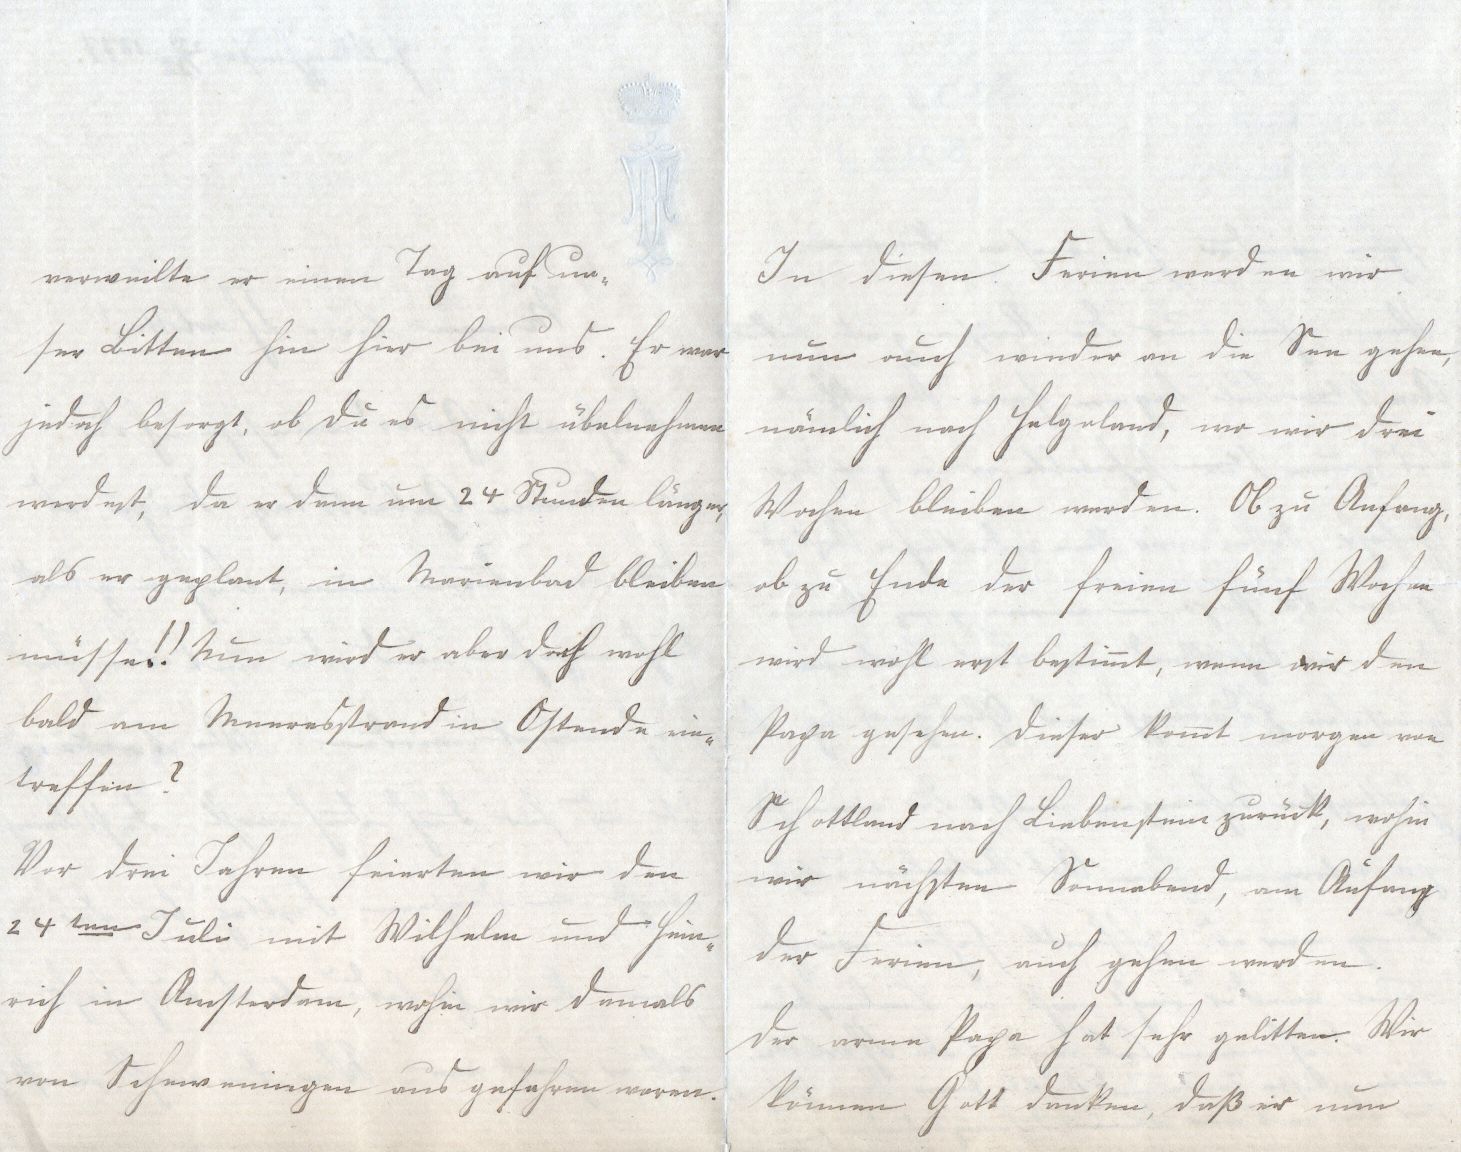 verweilte er einen Tag auf un=
ser Bitten hin hier bei uns. Er war
jedoch besorgt, ob Du es nicht übelnehmen
werdest, da er dann um 24 Stunden länger,
als er geplant, in Marienbad bleiben
müsse!! Nun wird er aber doch wohl
bald am Meeresstrand in Ostende ein=
treffen?
Vor drei Jahren feierten wir den
24ten Juli mit Wilhelm und Hein=
rich in Amsterdam, wohin wir damals
von Scheveningen aus gefahren waren.
In diesen Ferien werden wir
nun auch wieder an die See gehen,
nämlich nach Helgoland, wo wir drei
Wochen bleiben werden. Ob zu Anfang,
ob zu Ende der freien fünf Wochen
wird wohl erst bestimmt, wenn wir den
Papa gesehen. Dieser kommt morgen von
Schottland nach Liebenstein zurück, wohin
wir nächsten Sonnabend, am Anfang
der Ferien, auch gehen werden.
Der arme Papa hat sehr gelitten. Wir
können Gott danken, daß er nun